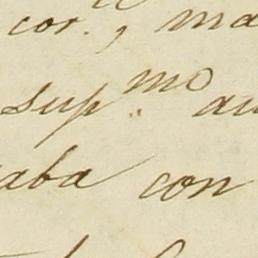 cor.te, ma
sup.mo au
aba con